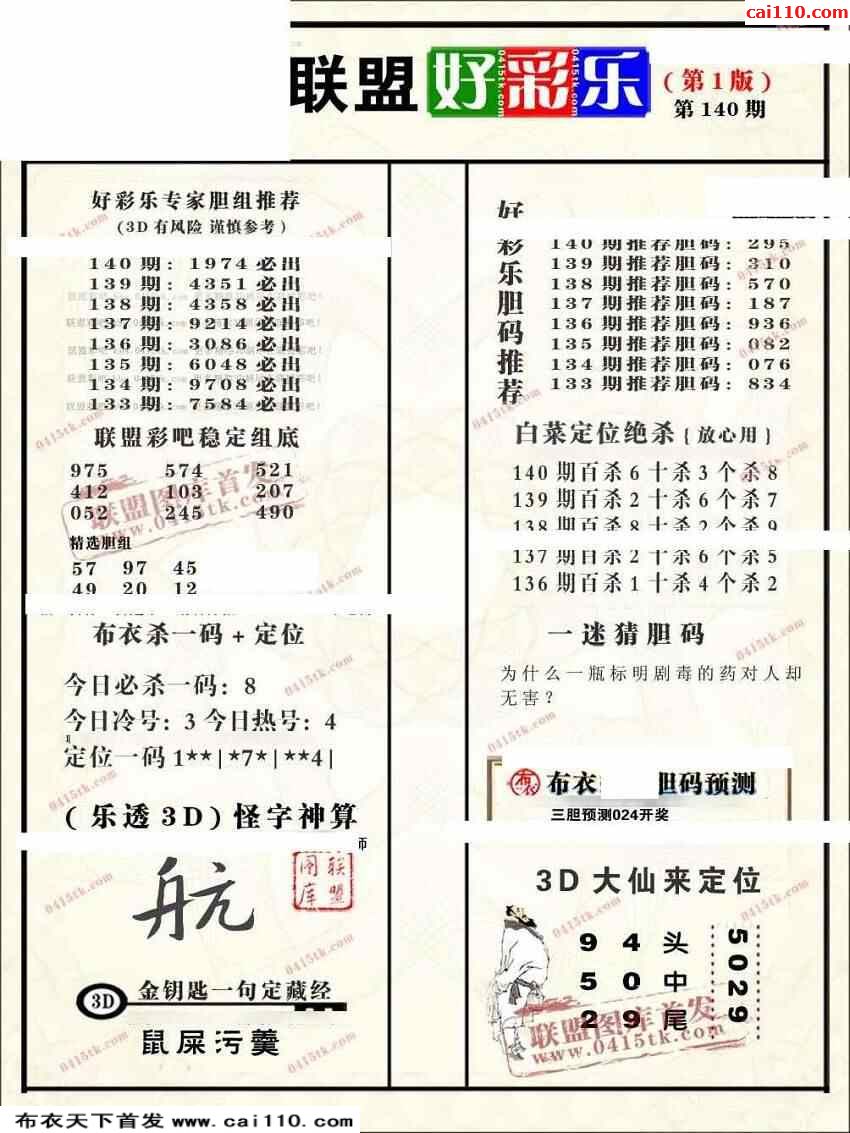 cai110.com
联盟好彩乐
0415tk.com 0415tk.com 0415tk.com
(第1版)
第140期
好彩乐专家胆组推荐
(3D有风险 谨慎参考)
140期: 1974必出
139期: 4351必出
138期: 4358必出
137期: 9214必出
136期: 3086必出
135期: 6048必出
134期: 9708必出
133期: 7584必出
联盟彩吧稳定组底
975 574 521
412 103 207
052 245 490
联盟图库首发
www.0415tk.com
精选胆组
57 97 45
49 20 12
布衣杀一码+定位
今日必杀一码: 8
今日冷号: 3 今日热号: 4
定位一码1**|*7*|**4|
(乐透3D)怪字神算
师
航
联盟图库
3D 金钥匙一句定藏经
鼠屎污羹
好彩乐胆码推荐
140期推荐胆码: 295
139期推荐胆码: 310
138期推荐胆码: 570
137期推荐胆码: 187
136期推荐胆码: 936
135期推荐胆码: 082
134期推荐胆码: 076
133期推荐胆码: 834
白菜定位绝杀{放心用}
140期百杀6十杀3个杀8
139期百杀2十杀6个杀7
138期百杀8十杀2个杀9
137期百杀2十杀6个杀5
136期百杀1十杀4个杀2
一迷猜胆码
为什么一瓶标明剧毒的药对人却
无害?
布衣 布衣 胆码预测
三胆预测024开奖
3D大仙来定位
9 4 头
5 0 中
2 9 尾
5029
联盟图库首发
www.0415tk.com
布衣天下首发 www.cai110.com